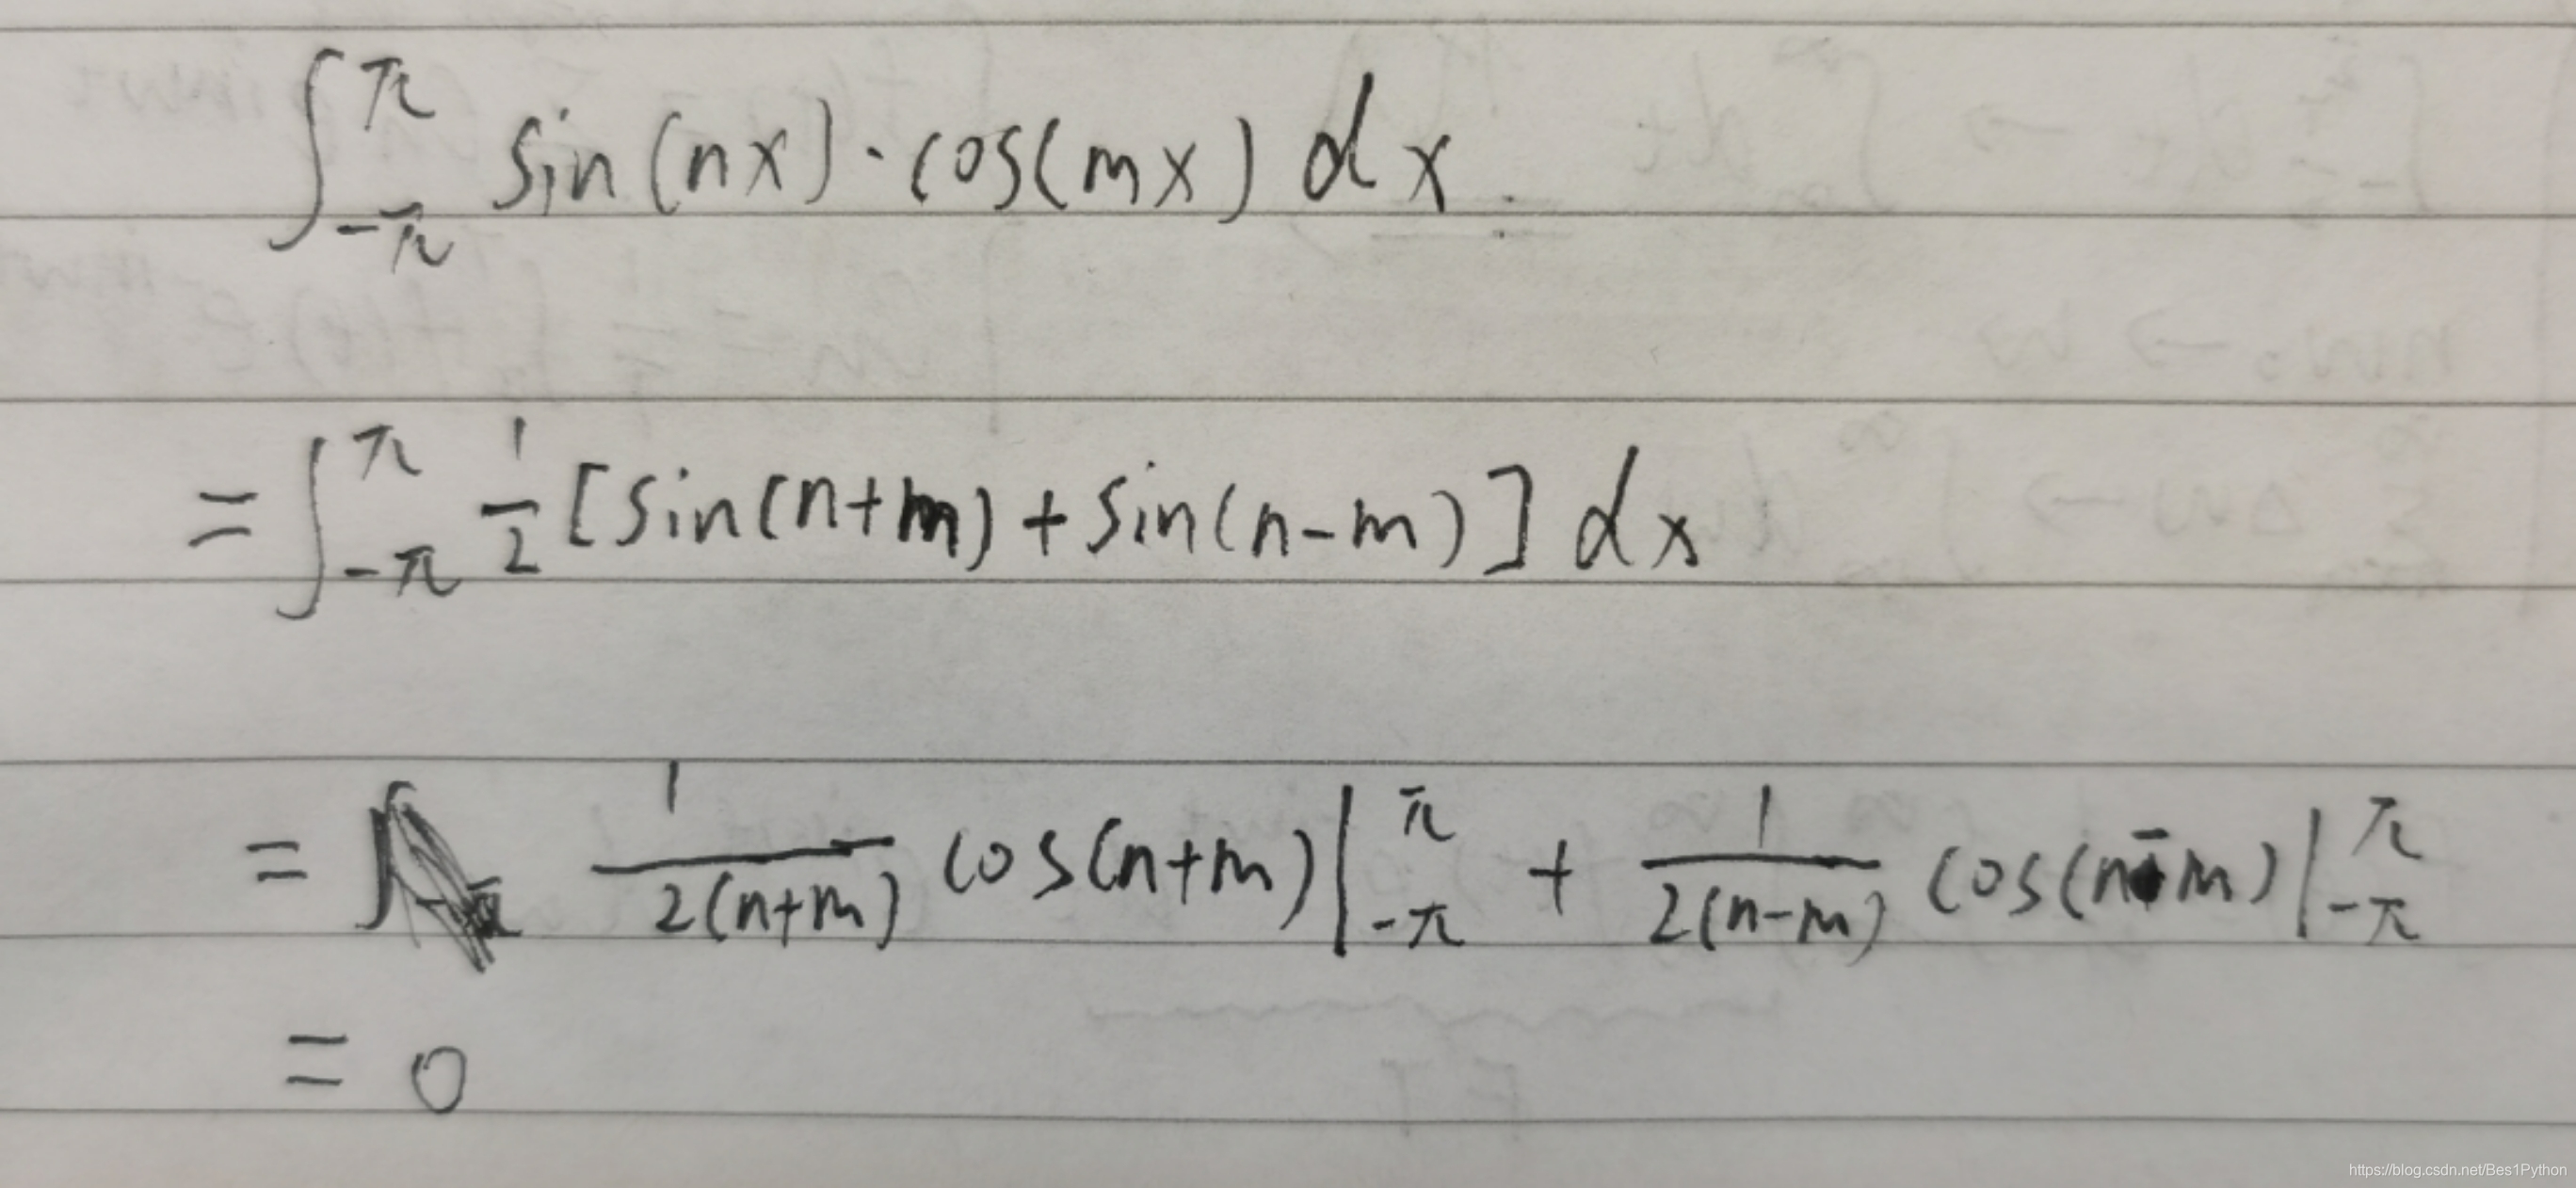 ∫_{-π}^{π} sin(nx)·cos(mx) dx
= ∫_{-π}^{π} 1/2 [sin(n+m) + sin(n-m)] dx
= 1/(2(n+m)) cos(n+m) |_{-π}^{π} + 1/(2(n-m)) cos(n-m) |_{-π}^{π}
= 0
https://blog.csdn.net/Bes1Python